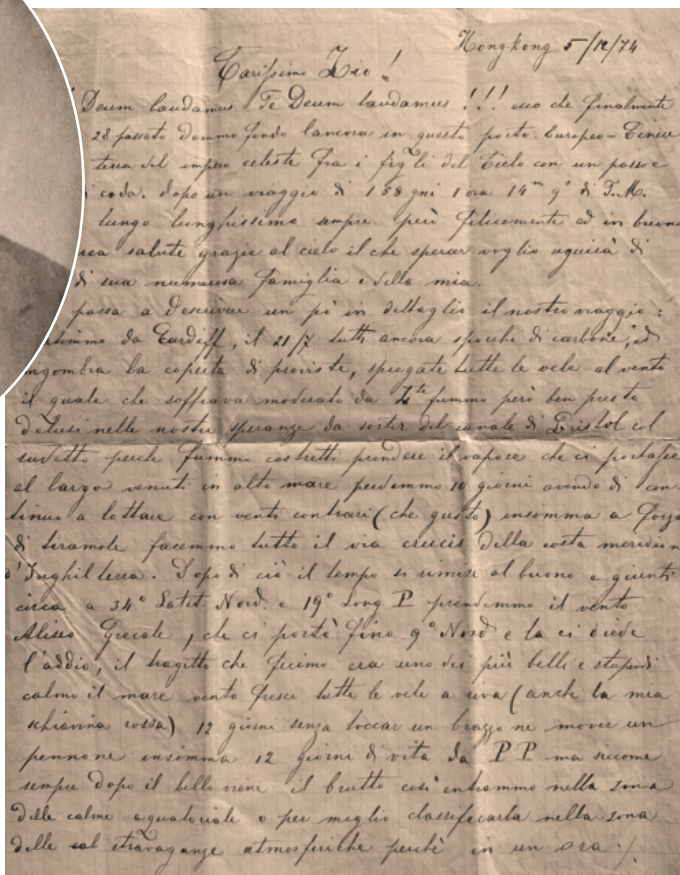 Hong-kong 5/12/74
Carissimo Zio!
Deum laudamus. Te Deum laudamus!!! ecco che finalmente
28 passato demmo fondo l'ancora in questo porto. Europeo-Cinese
terra del impero celeste fra i figli del Cielo con un passo e
coda. dopo un viaggio di 158 gni 1 ora 14m di T.M.
lungo lunghissimo sempre però felicemente ed in buona
salute grazie al cielo il che sperar voglio seguirà di
di sua numerosa famiglia e della mia.
passa a descrivere un pò in dettaglio il nostro viaggio:
da Cardiff, il 21/7 tutti ancora sporchi di carbone, ed
ingombra la coperta di proviste, spiegate tutte le vele al vento
il quale che soffiava moderato da fummo però ben presto
delusi nelle nostre speranze da sortir del canale di Bristol col
sudetto perche fummo costretti prendere il vapore che ci portasse
al largo venuti in alto mare perdemmo 10 giorni avendo di con-
tinuo a lottare con venti contrari (che gusto) insomma a forza
di tiramole facemmo tutto il via crucis della costa meridion
d'Inghilterra. Dopo di ciò il tempo si rimise al buono e giunti
circa a 34° Latit. Nord. e 19° Long P prendemmo il vento
Aliseo Grecale, che ci portò fino 9° Nord e la ci diede
l'addio, il tragitto che fecimo era uno dei più belli e stupendi
calmo il mare vento fresco tutte le vele a riva (anche la mia
schiavina rossa) 12 giorni senza toccar un brazzo ne mover un
pennone insomma 12 giorni di vita da P P ma siccome
sempre dopo il bello viene il brutto così entrammo nella zona
delle calme equatoriale o per meglio classificarla nella zona
delle stravaganze atmosferiche perchè in un ora ./.